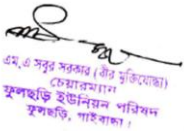 এম,এ সবুর সরকার (বীর মুক্তিযোদ্ধা)
চেয়ারম্যান
ফুলছড়ি ইউনিয়ন পরিষদ
ফুলছড়ি, গাইবান্ধা।